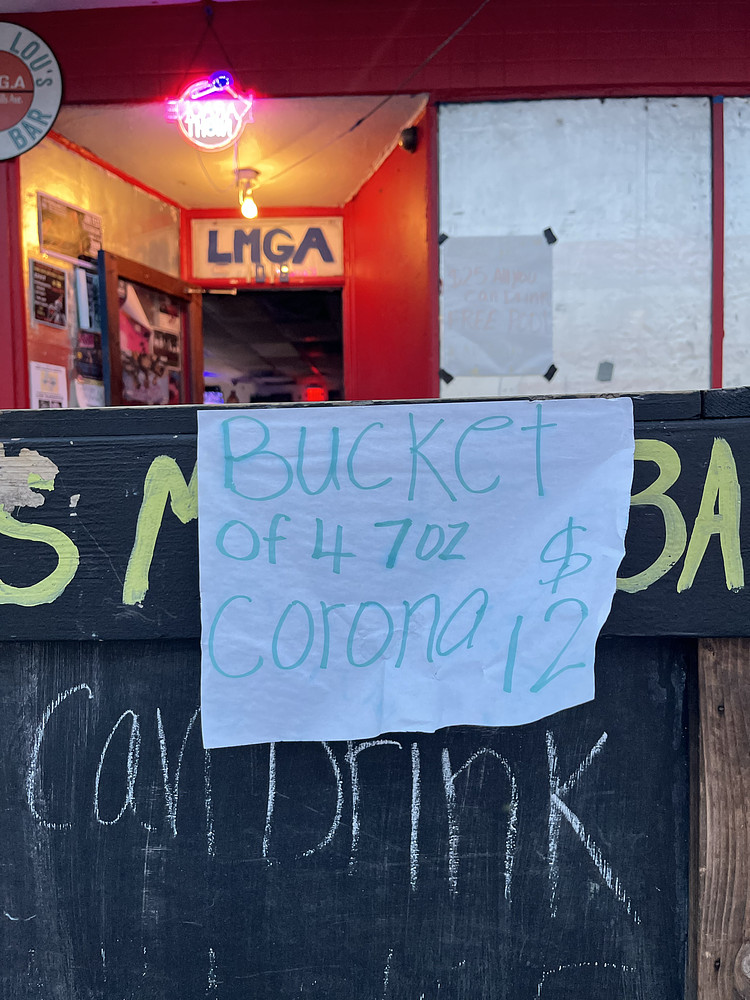 LOU'S
G.A
BAR
THON
LMGA
$25 All you
can Drink
FREE
Bucket
of 4 7oz
Corona $12
S M BA
Can Drink